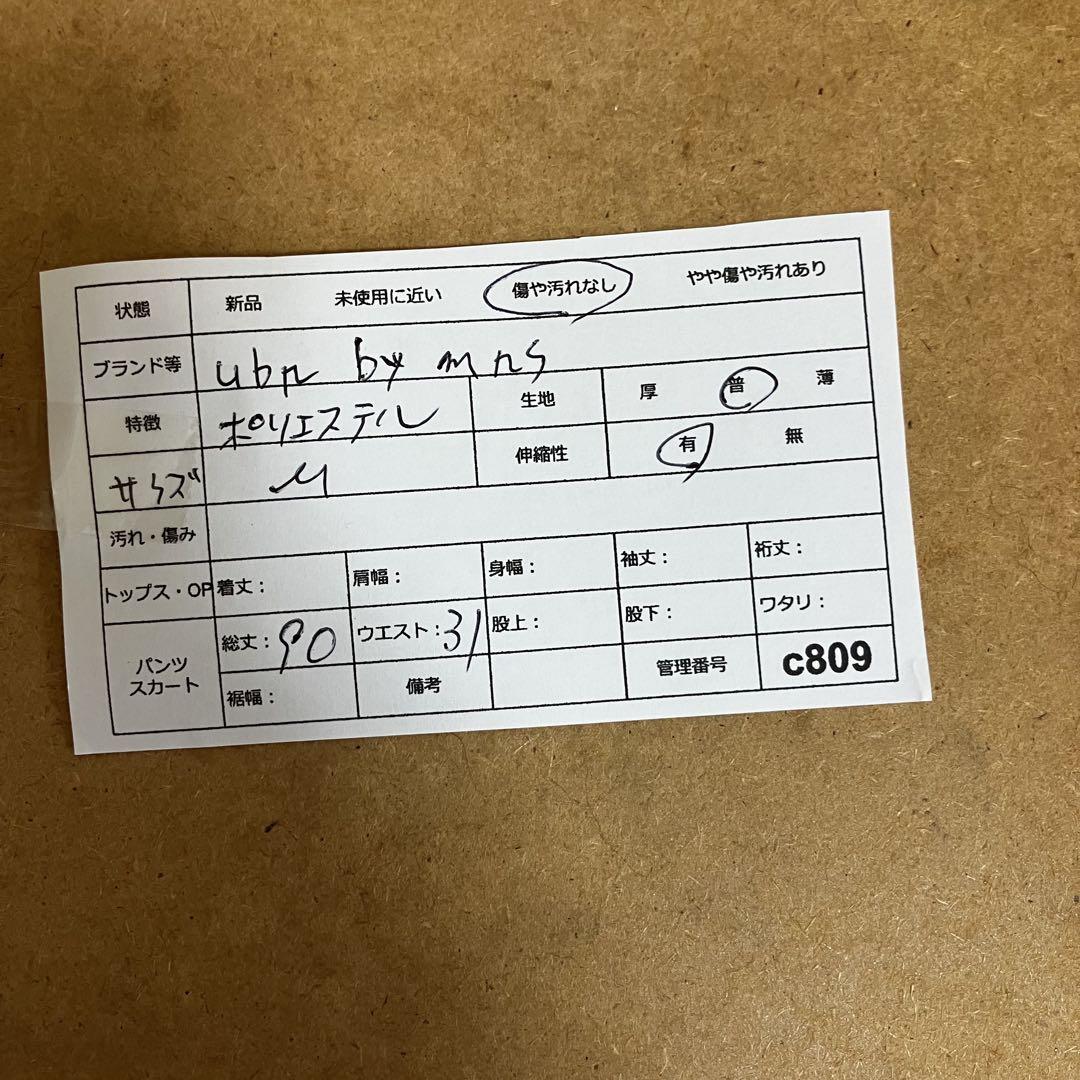 状態 新品 未使用に近い 傷や汚れなし やや傷や汚れあり
ブランド等 ubr by mns
特徴 ポリエステル 生地 厚 普 薄
サイズ M 伸縮性 有 無
汚れ・傷み
トップス・OP 着丈： 肩幅： 身幅： 袖丈： 裄丈：
パンツ スカート 総丈：90 ウエスト：31 股上： 股下： ワタリ：
裾幅： 備考 管理番号 c809